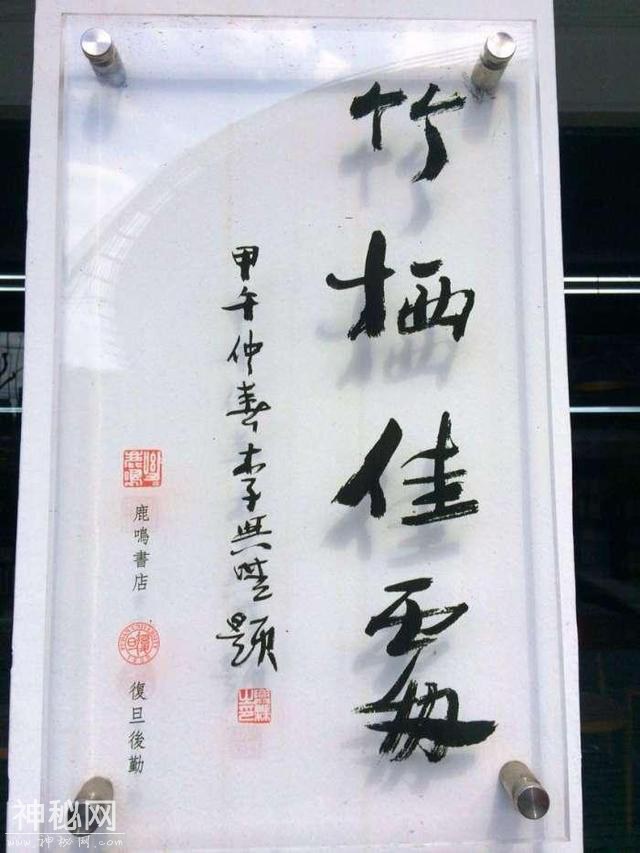 竹栖佳處
甲午仲春李題
鹿鳴
鹿鳴書店
復旦後勤
神秘网
www.神秘网.com